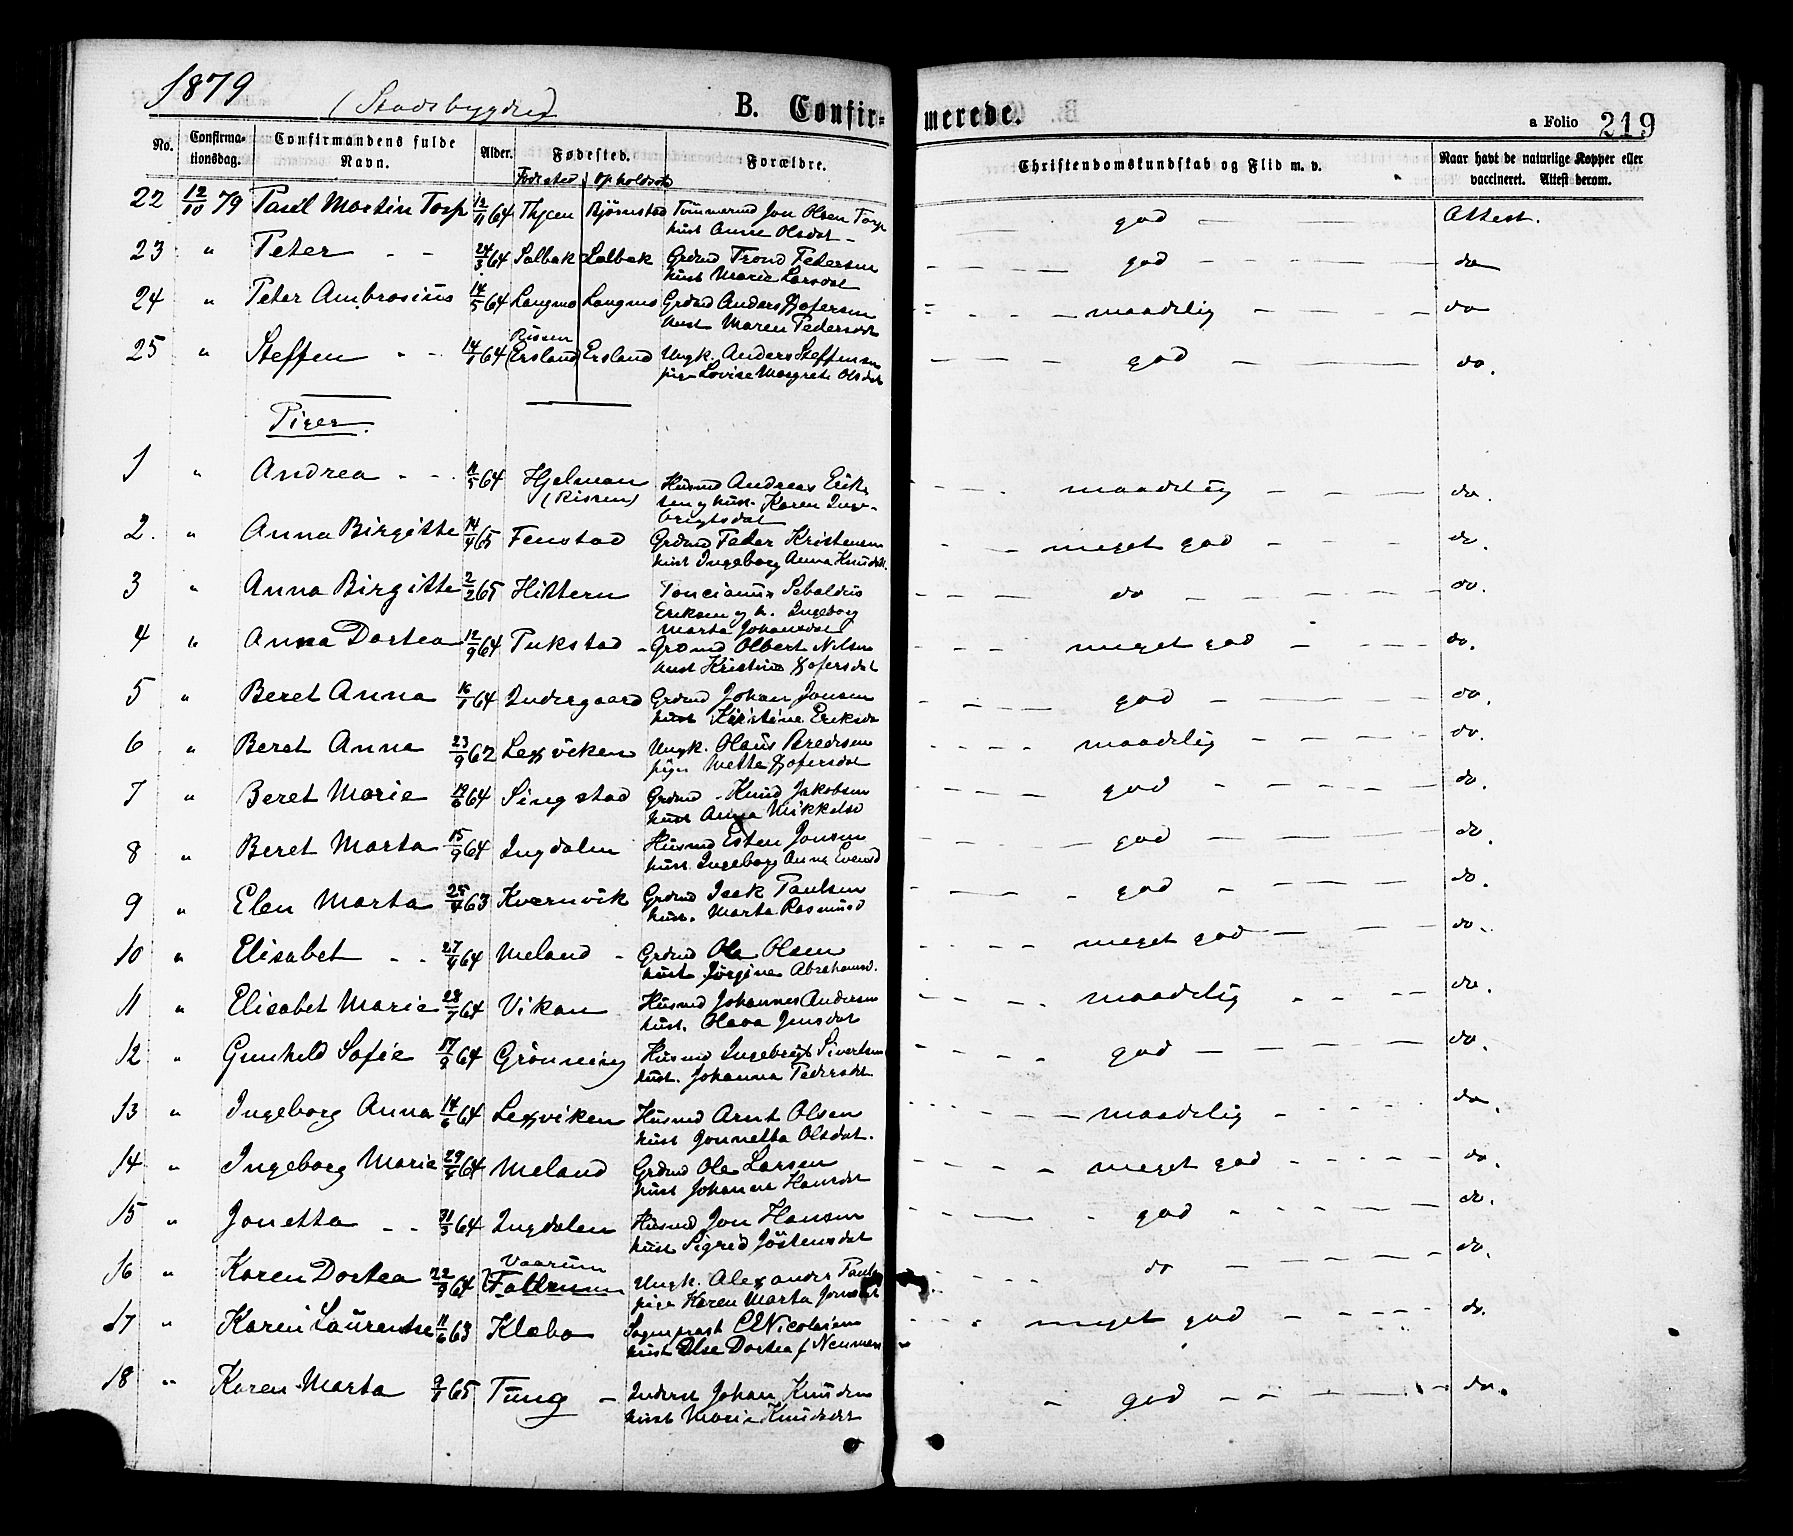 1879 (Stadsbygden) B. Confirmerede. a Folio 219
No. Confirmationsdag. Confirmandens fulde Navn. Alder. Fødested. Forældre. Christendomskundskab og Flid m. v. Naar havt de naturlige Kopper eller vaccineret. Attest derom.
Fødested Opholdssted
22 12/10 79 Paul Martin Torp 12/11 64 Thyen Bjørnstad Tømmermd Jon Olsen Torp god Attest.
hust Anne Olsdat
23 " Peter 24/3 64 Solbak Solbak Grdmd Trond Pedersen god do
hust Marie Larsdat
24 " Peter Ambrosius 14/5 64 Langmo Langmo Grdmd Anders maadelig do
hust Maren Pedersdat
25 " Steffen 14/1 64 Rissen (Ersland) Ersland Ungk. Anders Steffensen god do.
pige Lovise Margrete Olsdat
Piger.
1 " Andrea 11/5 64 Hjelman Husmd Andreas Erik- maadelig do.
(Rissen) sen og hust. Karen Inge-
brigtsdat
2. " Anna Birgitte 14/4 65 Fenstad Grdmd Peder Kristensen meget god do.
hust Ingeborg Anna Knudsd.
3 " Anna Birgitte 2/2 65 Hittern Poncianus Sebaldus do do.
Eriksen og h. Ingeborg
Marta Johansdat
4 " Anna Dortea 12/9 64 Pukstad Grdmd Olbert Nilsen meget god do.
hust Kristine
5 " Beret Anna 16/1 64 Indergaard Grdmd Johan Jonsen god do.
hust Kirstine Eriksda
6 " Beret Anna 23/9 62 Lexviken Ungk. Olaus Bredesen maadelig do.
pige Mette
7 " Beret Marie 19/6 64 Singstad Grdmd Knud Jakobsen god do.
hust Anna Mikkelsd
8 " Beret Marta 15/9 64 Ingdalen Husmd Esten Jonsen god do.
hust. Ingeborg Anna Evensd
9 " Elen Marta 25/4 63 Kvernvik Grdmd Isak Paulsen god do.
hust. Marta Rasmusd
10 " Elisabet 27/4 64 Meland Grdmd Ole Olsen meget god do.
hust Jørgine Abrahamsd.
11 " Elisabet Marie 28/7 64 Vikan Husmd Johannes Andersen maadelig do.
hust. Olava Jensdat
12 " Gunhild Sofie 17/9 64 Grønning Husmd Ingebrigt Sivertsen god do.
hust. Johanna Pedersdat
13 " Ingeborg Anna 14/6 64 Lexviken Husmd Arnt Olsen maadelig do.
hust Jonnetta Olsdat.
14 " Ingeborg Marie 29/4 64 Meland Grdmd Ole Larsen meget god do.
hust Johanne Hansdat
15 " Jonetta 31/3 64 Ingdalen Husmd Jon Hansen god do.
hust Sigrid Jøstensdat
16 " Karen Dortea 22/3 64 Vaarum Ungk. Alexander Pauls do do.
pige Karen Marta Jonsdat
17 " Karen Laurentse 11/6 63 Klæbo Sogneprest C E Nicolaisen meget god do.
hust Else Dortea f Neuman
18 " Karen Marta 9/1 65 Tung Inderst Johan Knudsen god do.
hust Marie Knudsdat